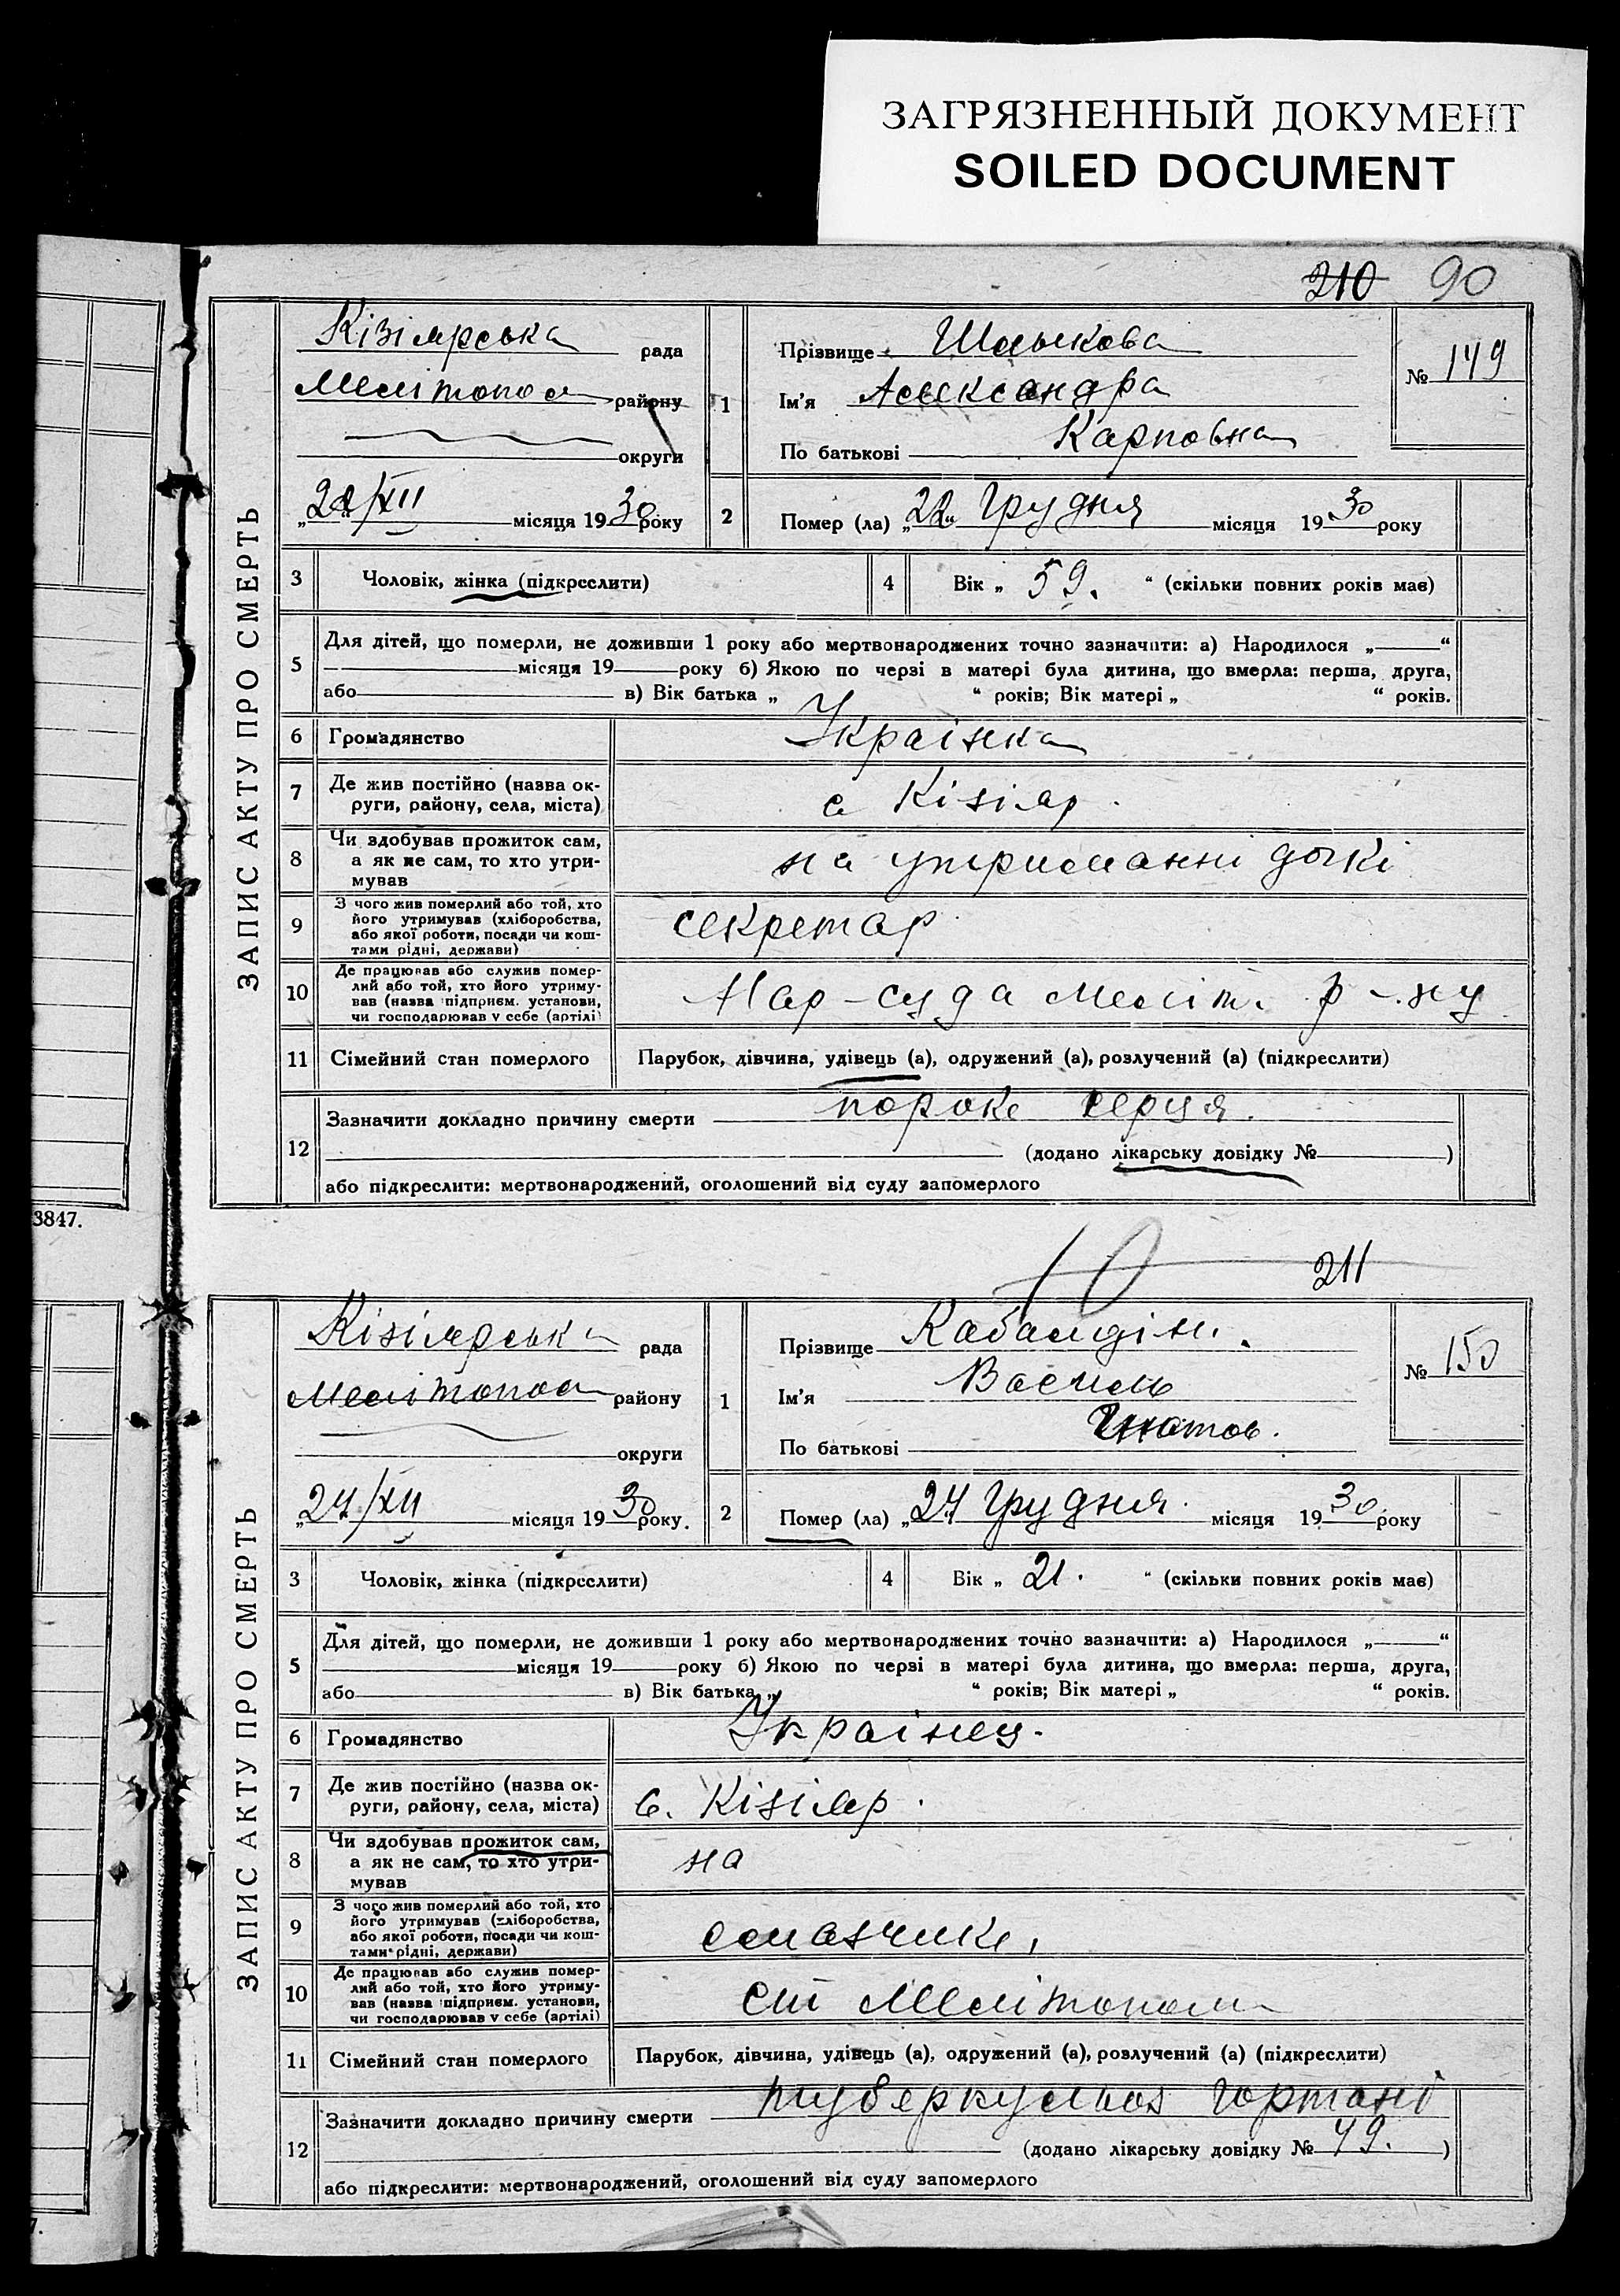 ЗАГРЯЗНЕННЫЙ ДОКУМЕНТ
SOILED DOCUMENT
210 90
ЗАПИС АКТУ ПРО СМЕРТЬ
Кізіярська рада
Мелітопол району
округи
„22/XII місяця 1930 року
1
Прізвище
Ім'я Александра
По батькові Карповна
№ 149
2
Помер (ла) „22" Грудня місяця 1930 року
3 Чоловік, жінка (підкреслити)
4 Вік „ 59. " (скільки повних років має)
5 Для дітей, що померли, не доживши 1 року або мертвонароджених точно зазначити: а) Народилося „ "
місяця 19 року б) Якою по черзі в матері була дитина, що вмерла: перша, друга,
або в) Вік батька „ " років; Вік матері „ " років.
6 Громадянство Українка
7 Де жив постійно (назва ок-
руги, району, села, міста) с Кізіяр.
8 Чи здобував прожиток сам,
а як не сам, то хто утри-
мував на утриманні дочкі
9 З чого жив померлий або той, хто
його утримував (хліборобства,
або якої роботи, посади чи кош-
тами рідні, держави) секретар
10 Де працював або служив помер-
лий або той, хто його утриму-
вав (назва підприєм. установи,
чи господарював у себе (артілі) Нар-суда Меліт. р-ну
11 Сімейний стан померлого Парубок, дівчина, удівець (а), одружений (а), розлучений (а) (підкреслити)
12 Зазначити докладно причину смерти пороке серця.
(додано лікарську довідку № )
або підкреслити: мертвонароджений, оголошений від суду запомерлого
3847.
10 211
ЗАПИС АКТУ ПРО СМЕРТЬ
Кізіярська рада
Мелітопол району
округи
„24/XII місяця 1930 року.
1
Прізвище
Ім'я Василь
По батькові Гнатов.
№ 150
2
Помер (ла) „24" Грудня. місяця 1930. року
3 Чоловік, жінка (підкреслити)
4 Вік „ 21. " (скільки повних років має)
5 Для дітей, що померли, не доживши 1 року або мертвонароджених точно зазначити: а) Народилося „ "
місяця 19 року б) Якою по черзі в матері була дитина, що вмерла: перша, друга,
або в) Вік батька „ " років; Вік матері „ " років.
6 Громадянство Українец.
7 Де жив постійно (назва ок-
руги, району, села, міста) с. Кізіяр.
8 Чи здобував прожиток сам,
а як не сам, то хто утри-
мував на
9 З чого жив померлий або той, хто
його утримував (хліборобства,
або якої роботи, посади чи кош-
тами рідні, держави) смазчике,
10 Де працював або служив помер-
лий або той, хто його утриму-
вав (назва підприєм. установи,
чи господарював у себе (артілі) ст Мелітополь
11 Сімейний стан померлого Парубок, дівчина, удівець (а), одружений (а), розлучений (а) (підкреслити)
12 Зазначити докладно причину смерти туберкульоз гортані
(додано лікарську довідку № 49. )
або підкреслити: мертвонароджений, оголошений від суду запомерлого
7.